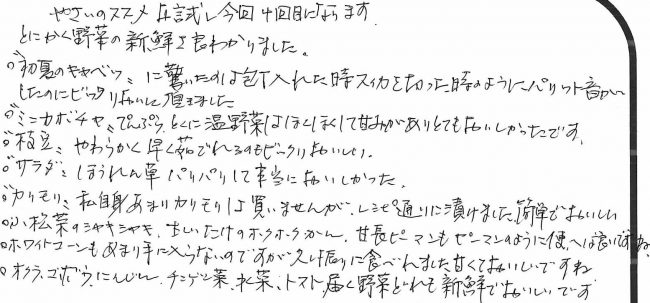 やさいのススメ お試し 今回 4回目になります。
とにかく野菜の新鮮さ わかりました。
○"初夏のキャベツ" に驚いたのは包丁入れた時スイカを切った時のようにパリット音が
したのにビックリおいしく頂きました
○"ミニカボチャ" てんぷら、とくに温野菜はほくほくして甘みがありとてもおいしかったです。
○"枝豆" やわらかく早く茹でれるのもビックリおいしい。
○"サラダ" ほうれん草 パリパリして本当においしかった。
○"カリモリ" 私自身あまりカリモリは買いませんが、レシピ通りに漬けました簡単でおいしい
○小松菜のシャキシャキ、しいたけのホクホクかん、甘長ピーマンもピーマンのように使へば良いですね
○ホワイトコーンもあまり手に入らないのですが久し振りに食べれました甘くておいしいですね
○オクラ、ゴボウ、にんじん、チンゲン菜、水菜、トマト、届く野菜どれも新鮮でおいしいです